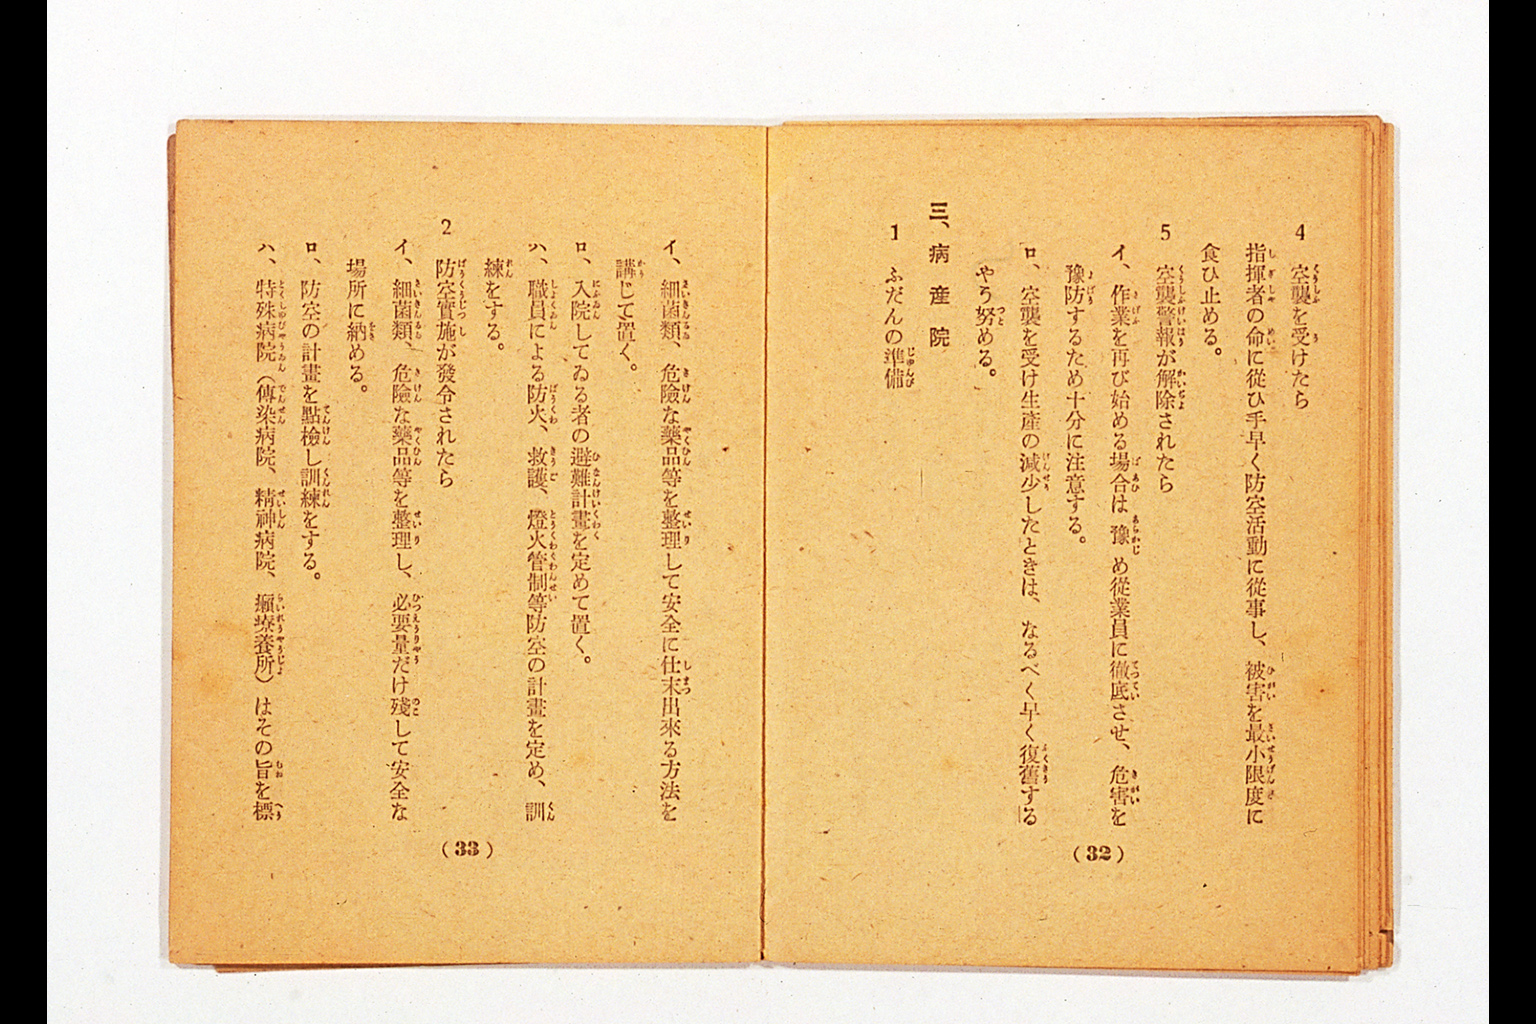 4　空襲を受けたら
指揮者の命に從ひ手早く防空活動に從事し、被害を最小限度に
食ひ止める。
5　空襲警報が解除されたら
イ、作業を再び始める場合は豫め從業員に徹底させ、危害を
豫防するため十分に注意する。
ロ、空襲を受け生産の減少したときは、なるべく早く復舊する
やう努める。
三、病産院
1　ふだんの準備
(32)
イ、細菌類、危險な藥品等を整理して安全に仕末出來る方法を
講じて置く。
ロ、入院してゐる者の避難計畫を定めて置く。
ハ、職員による防火、救護、燈火管制等防空の計畫を定め、訓
練をする。
2　防空實施が發令されたら
イ、細菌類、危險な藥品等を整理し、必要量だけ殘して安全な
場所に納める。
ロ、防空の計畫を點檢し訓練をする。
ハ、特殊病院（傳染病院、精神病院、癩療養所）はその旨を標
(33)